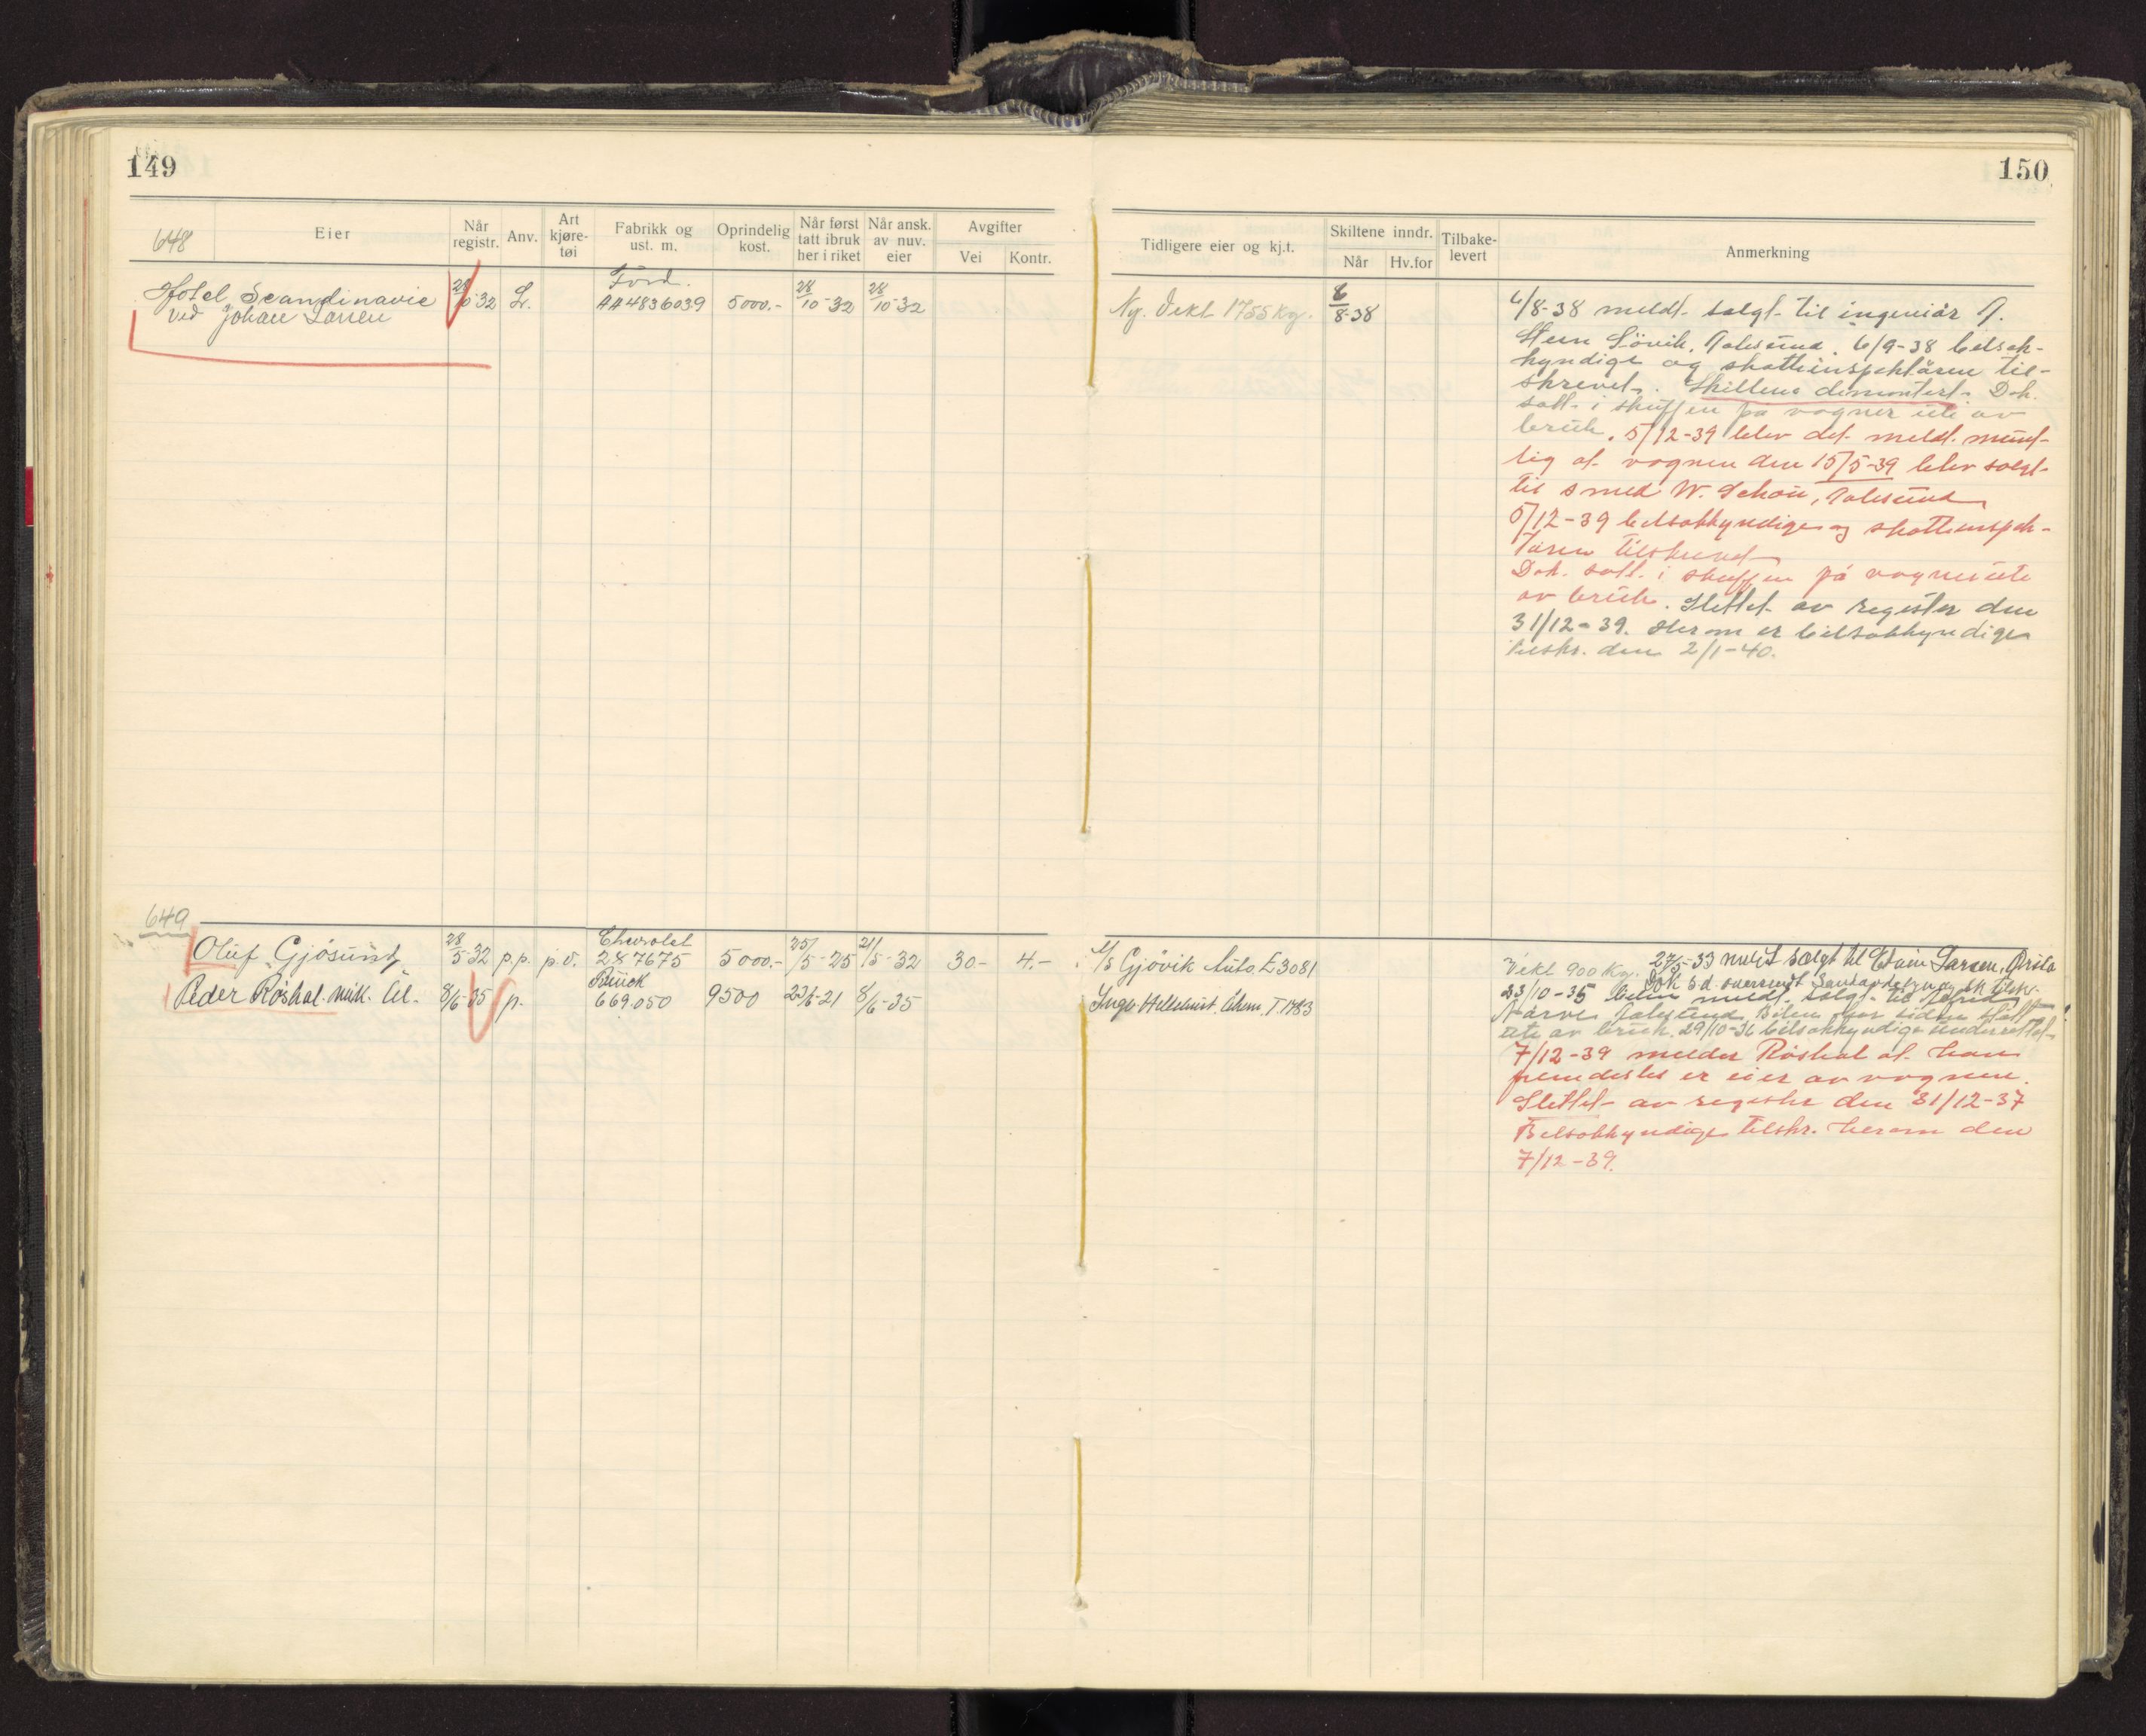 149
150
648
Eier
Når registr.
Anv.
Art kjøre-tøi
Fabrikk og ust. m.
Oprindelig kost.
Når først tatt ibruk her i riket
Når ansk. av nuv. eier
Avgifter
Vei
Kontr.
Tidligere eier og kj.t.
Skiltene inndr.
Når
Hv.for
Tilbake-levert
Anmerkning
Hotel Scandinavie
ved Johan Larsen
28/10-32
L.
Ford.
AA4836039
5000.-
28/10-32
28/10-32
Ny. Vekt 1755 kg.
6/8-38
6/8-38 meldt solgt til ingeniør
Lövik, Aalesund. 6/9-38 bilsak-
kyndige og skatteinspektören til-
skrevet. Skiltene demontert. Dok.
satt i skuffen på vogner ute av
bruk. 5/12-39 blev det meldt munt-
lig at vognen den 15/5-39 blev solgt
til smed W. Schou, Aalesund
5/12-39 bilsakkyndige og skatteinspek-
tören tilskrevet
Dok. satt i skuffen på vogner ute
av bruk. Slettet av register den
31/12-39. Herom er bilsakkyndige
tilskr. den 2/1-40.
649
Oluf Gjösund
28/5-32
p.p.
p.v.
Chevrolet
287675
5000.-
25/5-25
21/5-32
30-
4.-
A/S Gjövik Auto E3081
Vekt 900 Kg. 27/5-33 meldt solgt til Edvin Larsen,
Peder Röshol
8/6-35
p.
Buick
669.050
9500
23/6-21
8/6-35
T.1783
Dok s.d. oversendt
23/10-35 bilen meldt solgt til
Aalesund. Bilen har siden stått
ute av bruk. 29/10-36 bilsakkyndige underrettet
7/12-39 melder Röshol at han
fremdeles er eier av vognen.
Slettet av register den 31/12-37
Bilsakkyndige tilskr. herom den
7/12-39.